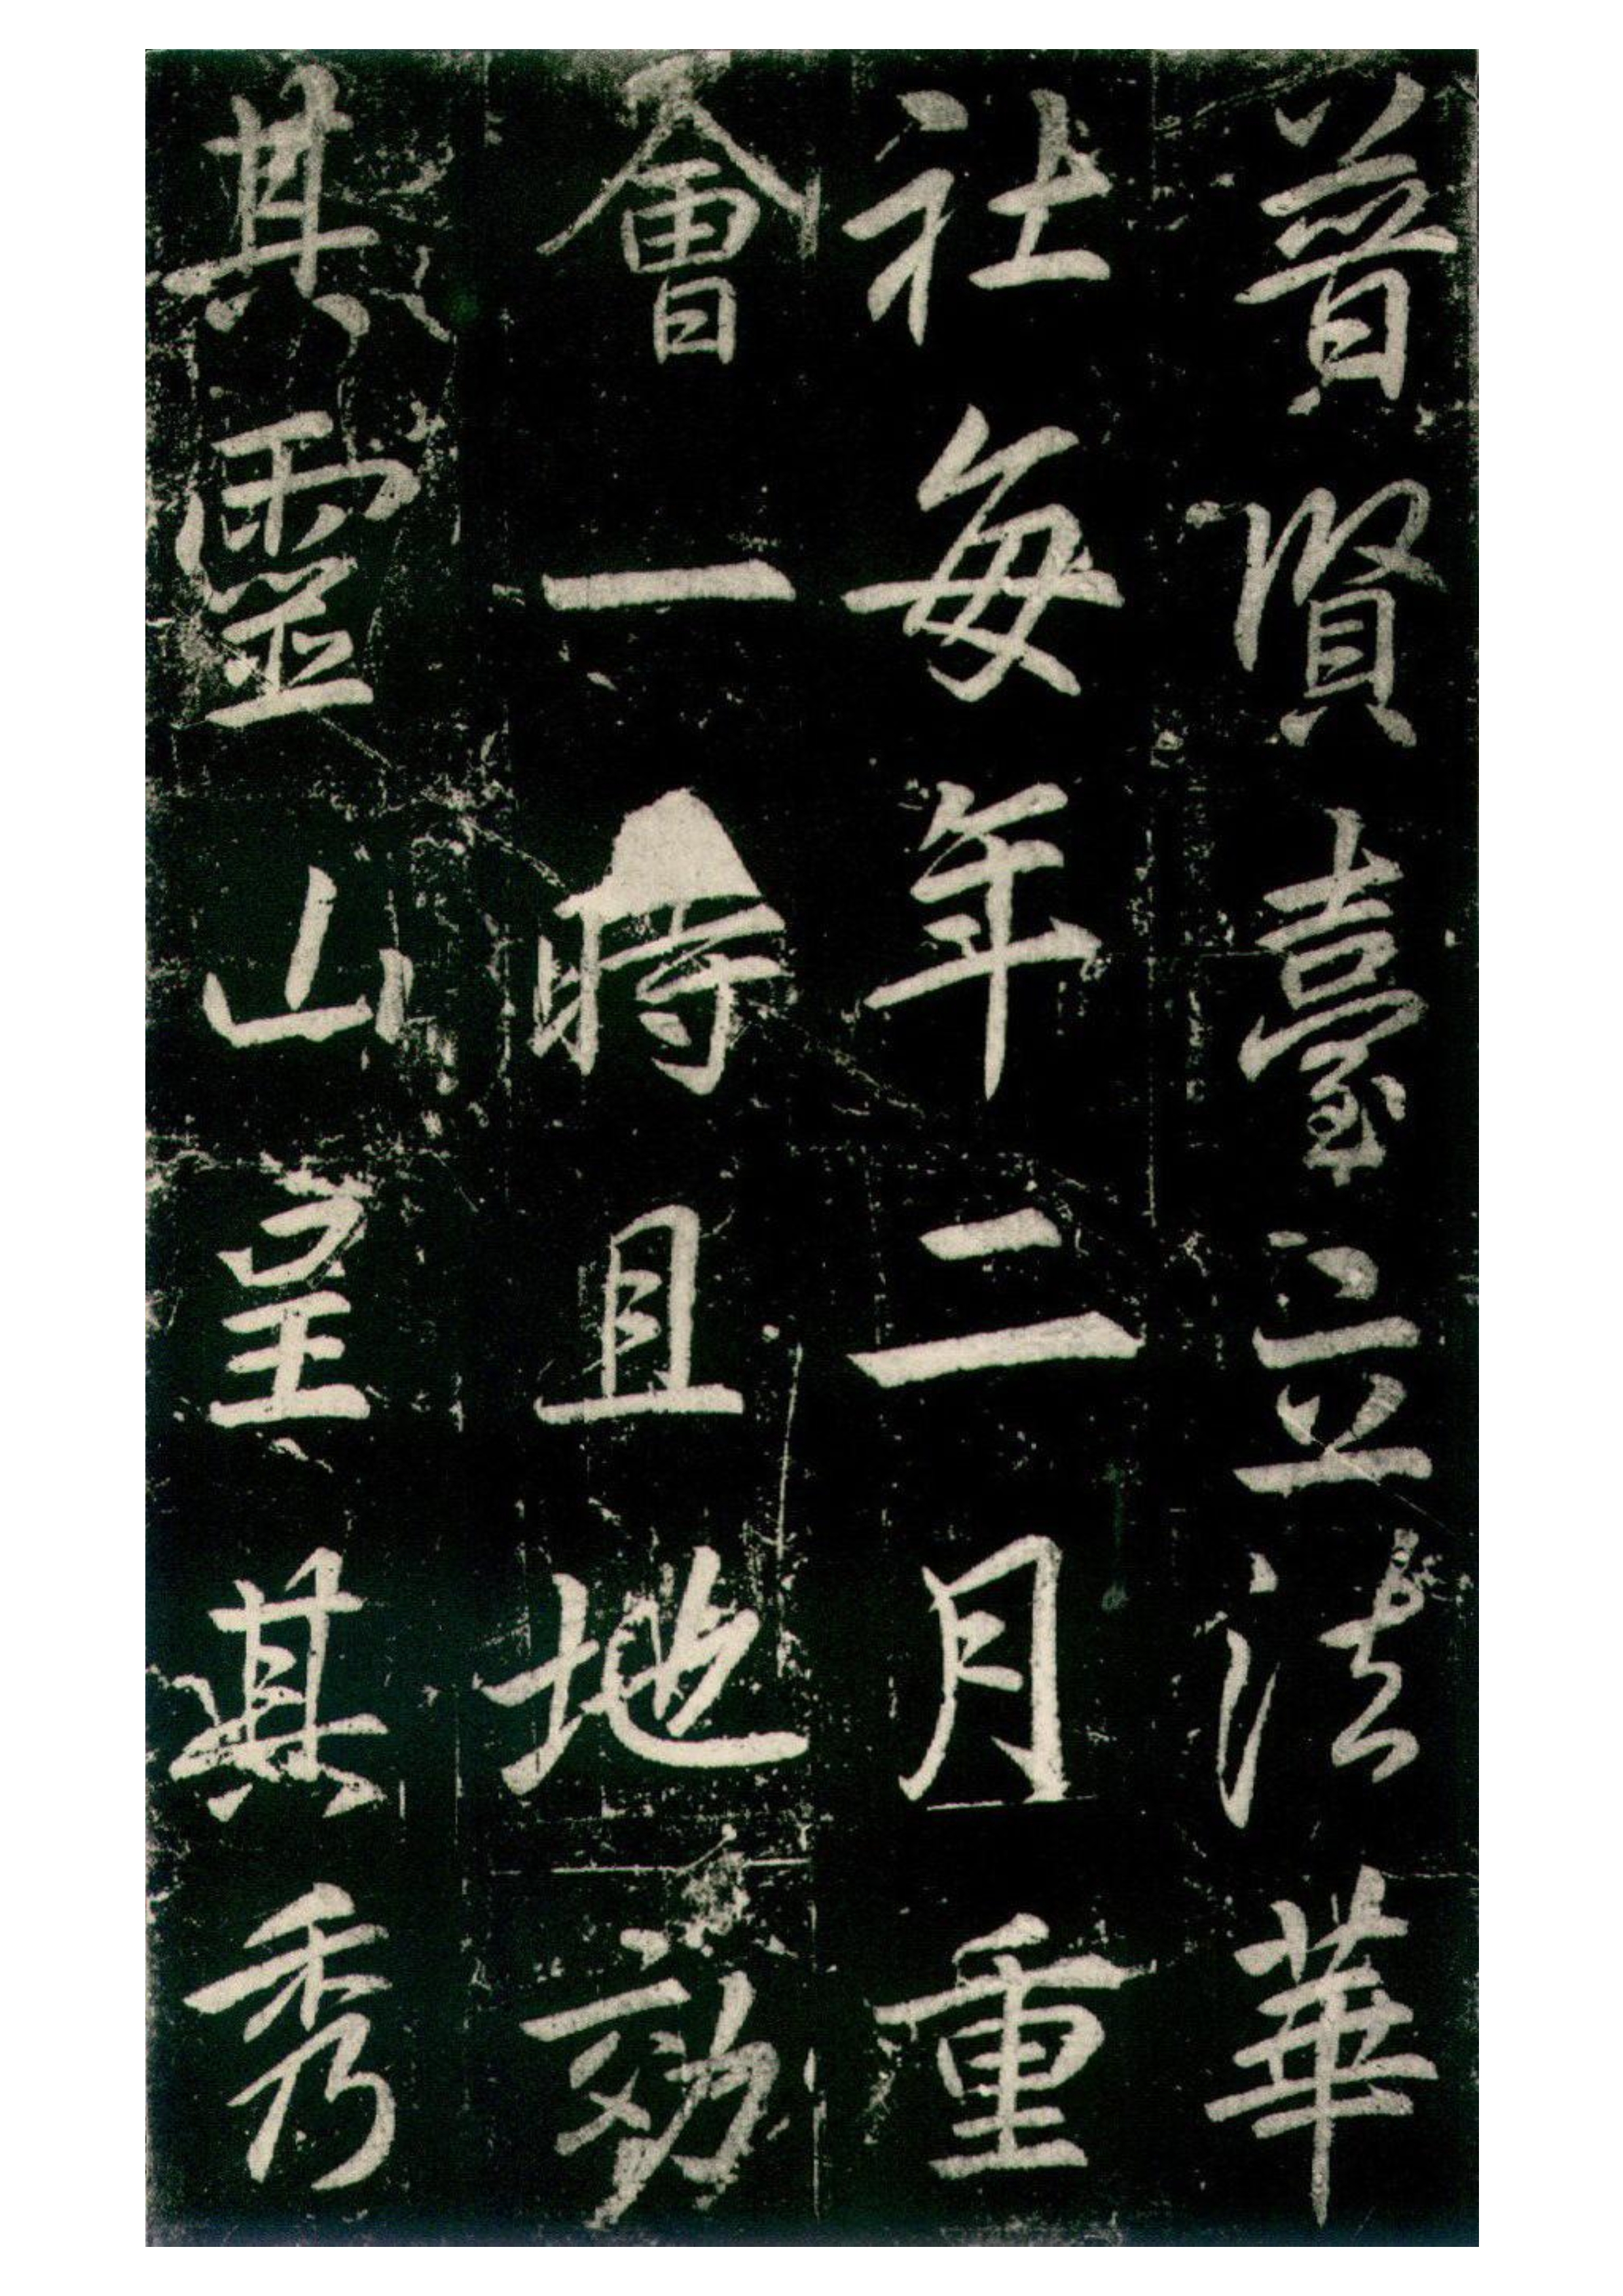 普賢臺立法華
社每年二月重
會一時且地効
其靈山呈其秀